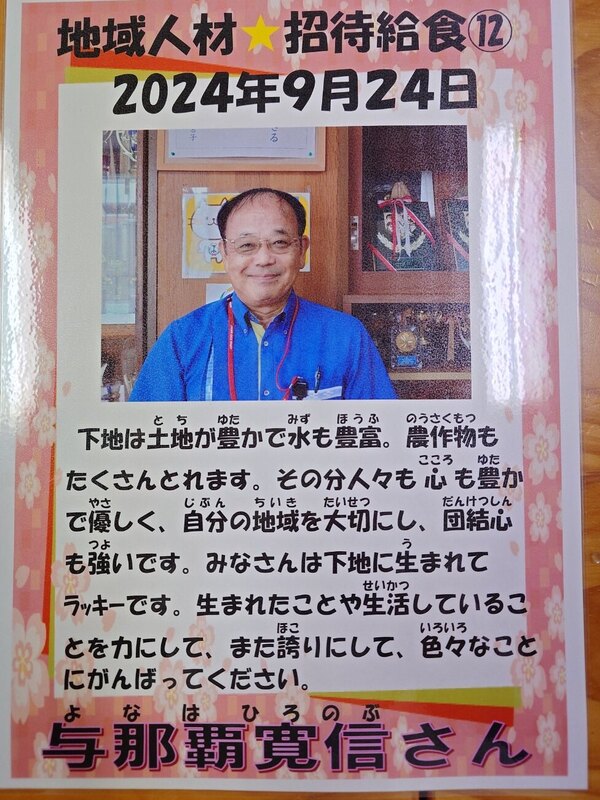 地域人材★招待給食⑫
2024年9月24日
とち ゆた みず ほうふ のうさくもつ
下地は土地が豊かで水も豊富。農作物も
こころ ゆた
たくさんとれます。その分人々も心も豊か
やさ じぶん ちいき たいせつ だんけつしん
で優しく、自分の地域を大切にし、団結心
つよ う
も強いです。みなさんは下地に生まれて
せいかつ
ラッキーです。生まれたことや生活しているこ
ほこ いろいろ
とを力にして、また誇りにして、色々なこと
にがんばってください。
よなは ひろのぶ
与那覇寛信さん